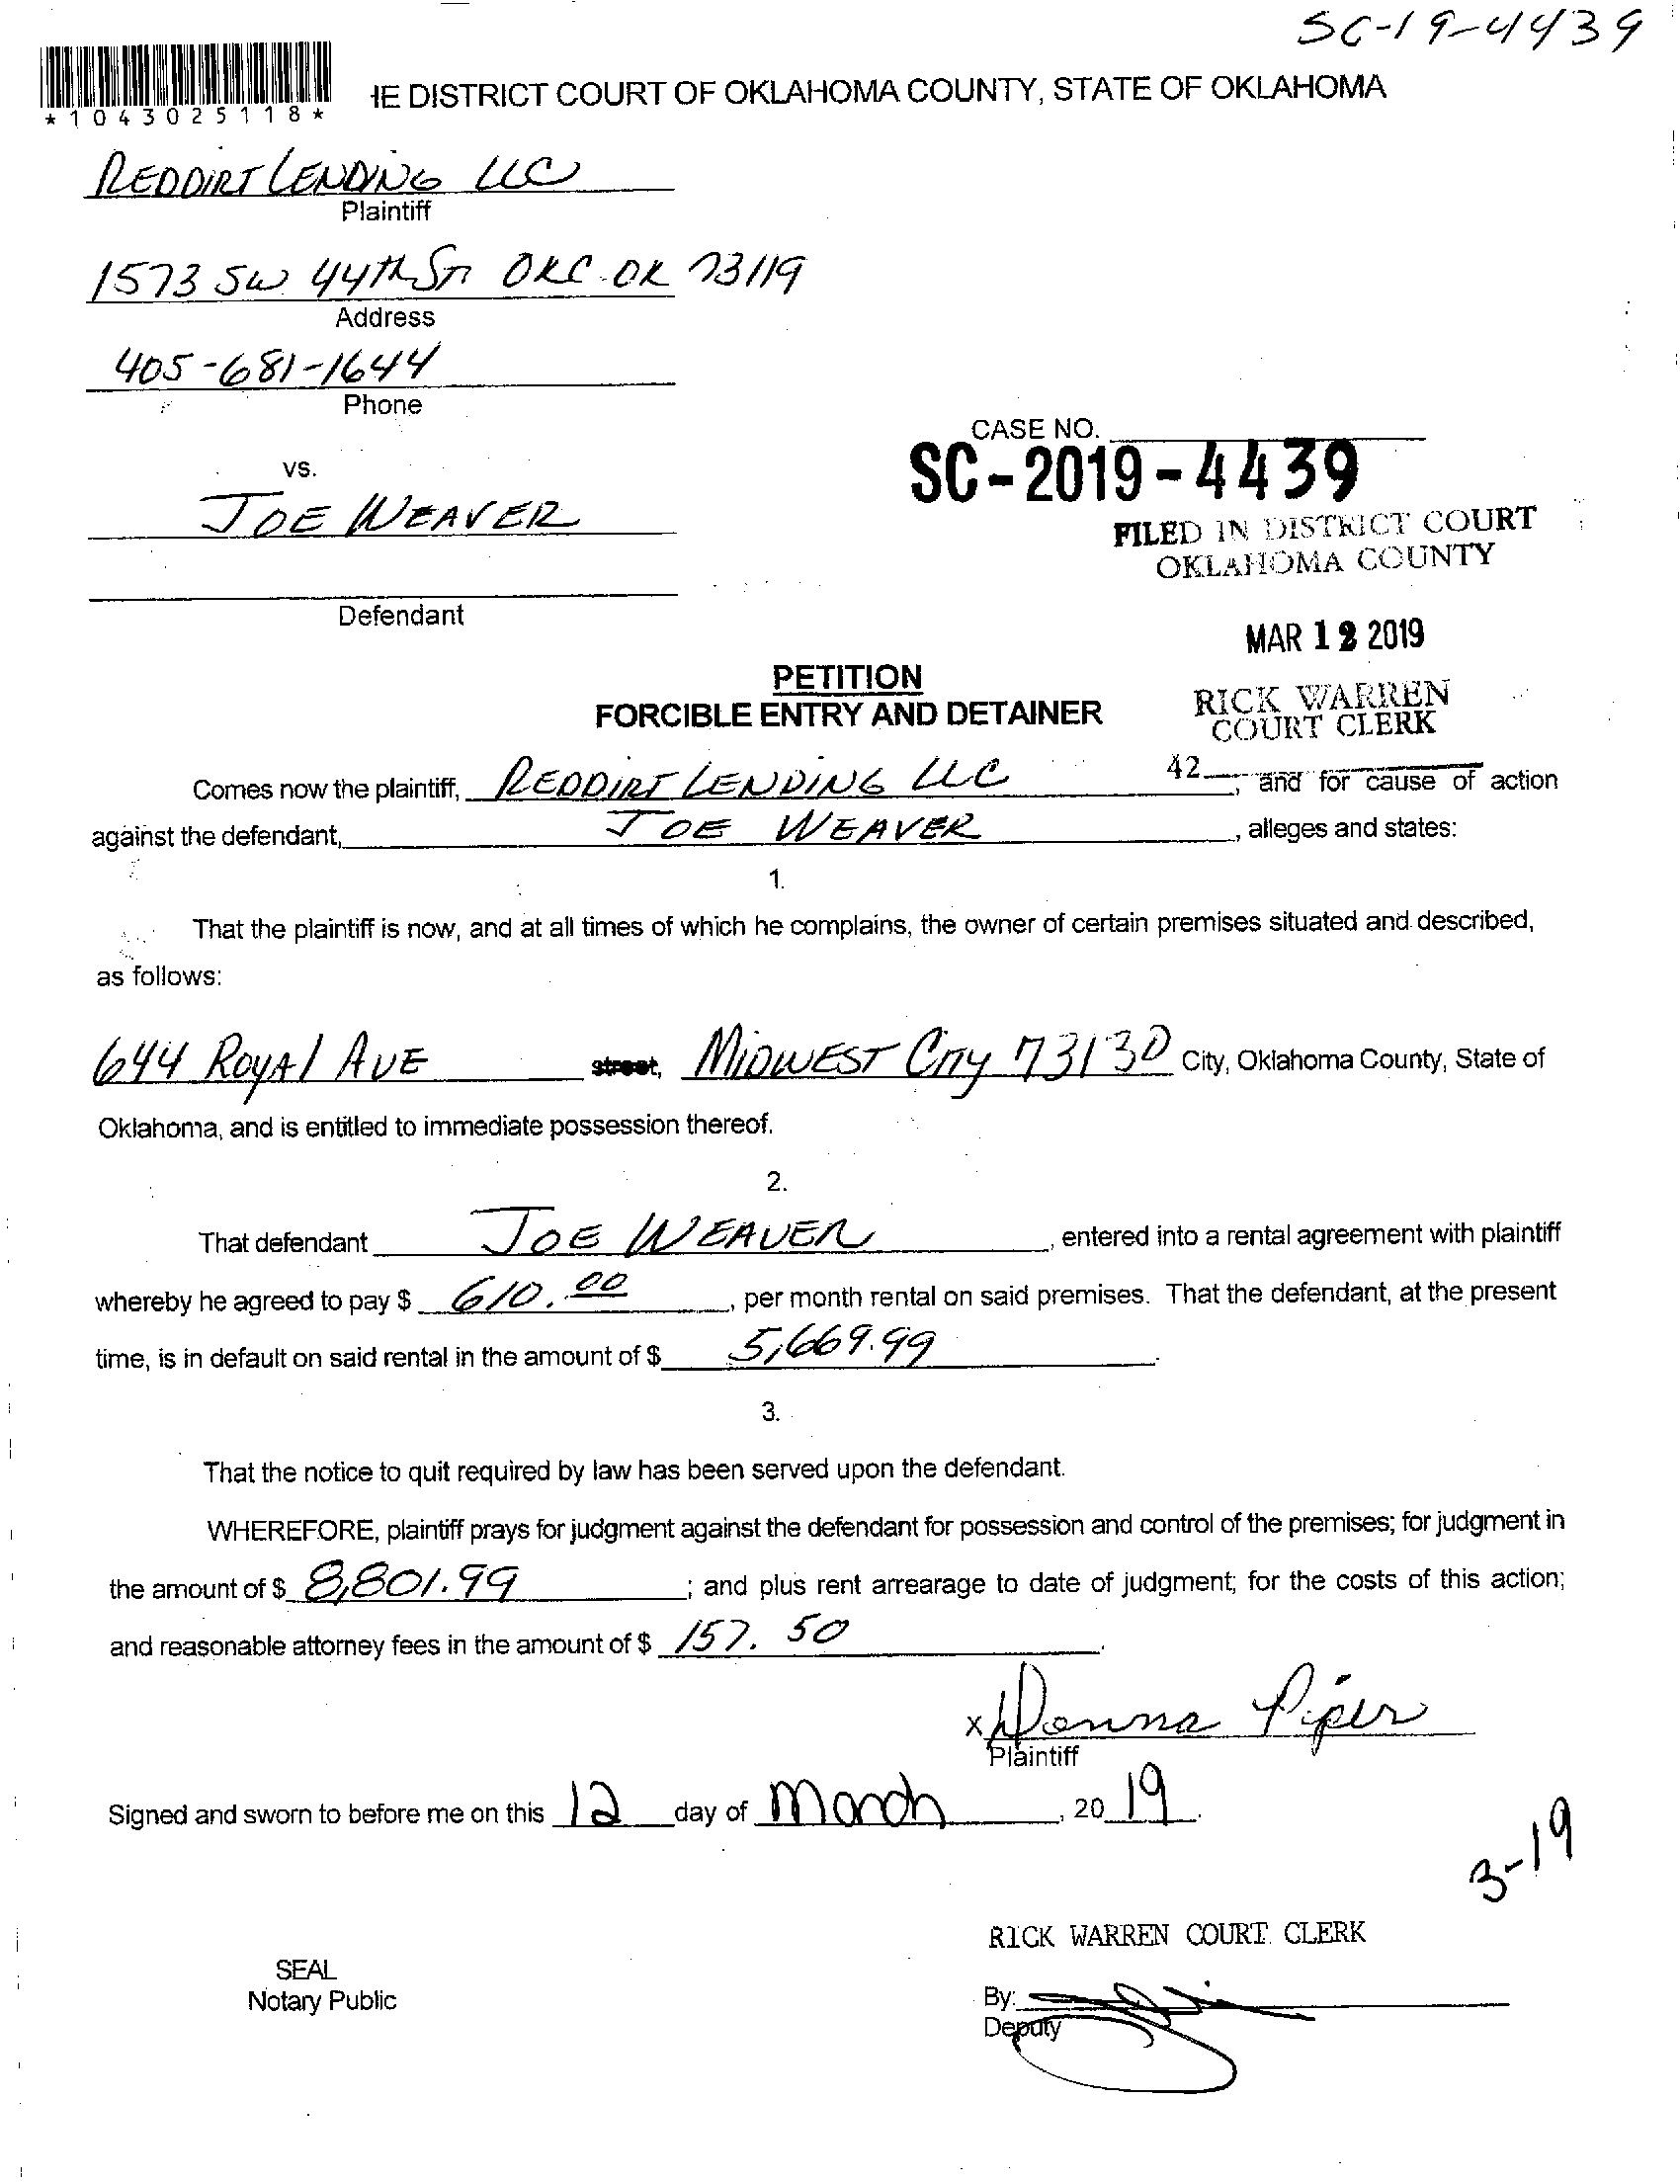 SC-19-4439
*1043025118*
IE DISTRICT COURT OF OKLAHOMA COUNTY, STATE OF OKLAHOMA
REDDIRT LENDING LLC
Plaintiff
1573 SW 44th St. OKC. OK 73119
Address
405-681-1644
Phone
CASE NO.
SC-2019-4439
vs.
JOE WEAVER
FILED IN DISTRICT COURT
OKLAHOMA COUNTY
Defendant
MAR 12 2019
PETITION
FORCIBLE ENTRY AND DETAINER
RICK WARREN
COURT CLERK
Comes now the plaintiff, REDDIRT LENDING LLC 42 , and for cause of action
against the defendant, JOE WEAVER , alleges and states:
1.
That the plaintiff is now, and at all times of which he complains, the owner of certain premises situated and described,
as follows:
644 ROYAL AVE street, MIDWEST CITY 73130 City, Oklahoma County, State of
Oklahoma, and is entitled to immediate possession thereof.
2.
That defendant JOE WEAVER , entered into a rental agreement with plaintiff
whereby he agreed to pay $ 610.00 , per month rental on said premises. That the defendant, at the present
time, is in default on said rental in the amount of $ 5,669.99 .
3.
That the notice to quit required by law has been served upon the defendant.
WHEREFORE, plaintiff prays for judgment against the defendant for possession and control of the premises; for judgment in
the amount of $ 8,801.99 ; and plus rent arrearage to date of judgment; for the costs of this action;
and reasonable attorney fees in the amount of $ 157.50 .
x Donna Piper
Plaintiff
Signed and sworn to before me on this 12 day of March , 20 19 .
3-19
RICK WARREN COURT CLERK
SEAL
Notary Public
By:
Deputy